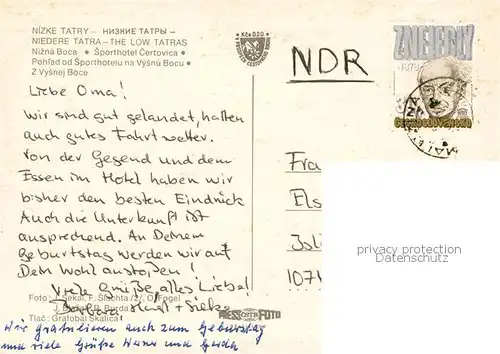 NÍZKE TATRY – НИЗКИЕ ТАТРЫ –
NIEDERE TATRA – THE LOW TATRAS
Nižná Boca • Športhotel Čertovica •
Pohľad od Športhotelu na Vyšnú Bocu •
Z Vyšnej Boce
Kčs 0,20
NDR
ZNEJEDLÝ
1878
ČESKOSLOVENSKO
Liebe Oma!
Wir sind gut gelandet, hatten
auch gutes Fahrtwetter.
Von der Gegend und dem
Essen im Hotel haben wir
bisher den besten Eindruck
Auch die Unterkunft ist
ansprechend. An Deinem
Geburtstag werden wir auf
Dein Wohl anstoßen!
Viele Grüße, alles Liebe!
Horst + Silke
Foto: J. Sekal, F. Šlachta /2/, O. Fogel
Tlač: Grafobal Skalica
PRESSFOTO
Wir gratulieren auch zum Geburtstag
und viele Grüße Werner und Gerda
Fra
Els
Jsl
107
privacy protection